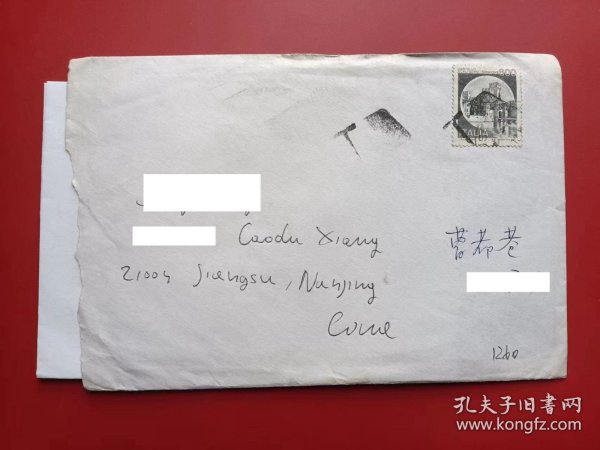 800
ITALIA
Caodu Xiang
曹都巷
21004 Jiangsu, Nanjing
Cina
1260
孔夫子旧書网
www.kongfz.com